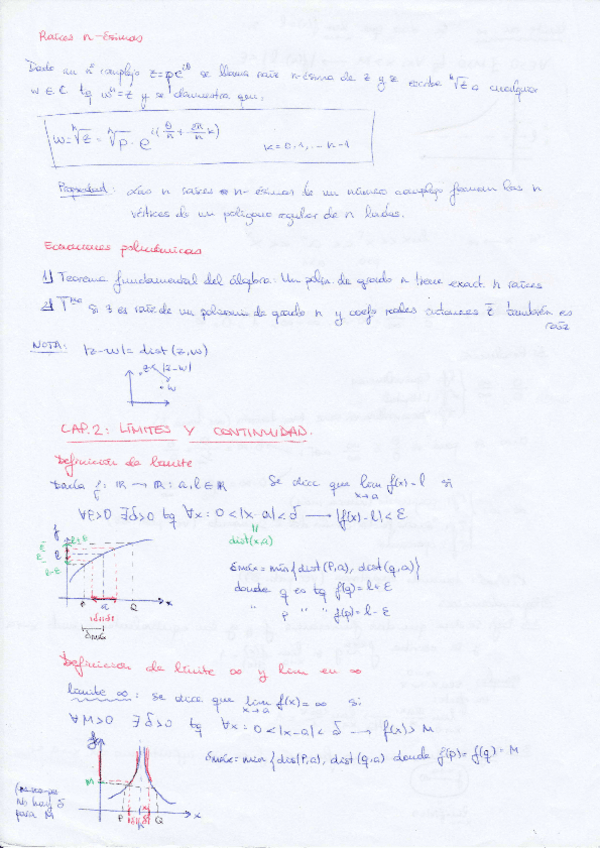 Raíces n-ésimas
Dado un nº complejo z=ρe^{iθ} se llama raíz n-ésima de z y se escribe ⁿ√z a cualquier
w ∈ ℂ tq wⁿ=z y se demuestra que:
w = ⁿ√z = ⁿ√ρ · e^{i(θ/n + 2π/n k)} k=0,1,...n-1
Propiedad: Las n raíces n-ésimas de un número complejo forman los n
vértices de un polígono regular de n lados.
Ecuaciones polinómicas
1) Teorema fundamental del álgebra: Un polin. de grado n tiene exact. n raíces
2) T^{ma} Si z es raíz de un polinomio de grado n y coefs reales entonces z̄ también es
raíz
NOTA: |z-w| = dist(z,w)
z |z-w|
w
CAP.2: LÍMITES Y CONTINUIDAD.
Definición de límite
Dada f: ℝ → ℝ; a, l ∈ ℝ Se dice que lim f(x) = l si
x→a
∀ε>0 ∃δ>0 tq ∀x: 0<|x-a|<δ → |f(x)-l|<ε
dist(x,a)
f l+ε
l
l-ε
P a Q x
δmáx
δmáx = mín{dist(P,a), dist(Q,a)}
donde Q es tq f(Q) = l+ε
" P " " f(P) = l-ε
Definición de límite ∞ y lím en ∞
Límite ∞: Se dice que lim f(x) = ∞ si:
x→a
∀M>0 ∃δ>0 tq ∀x: 0<|x-a|<δ → f(x)>M
δmáx = mín{dist(P,a), dist(Q,a) donde f(P) = f(Q) = M
f
M
No hay δ
para M
P Q x